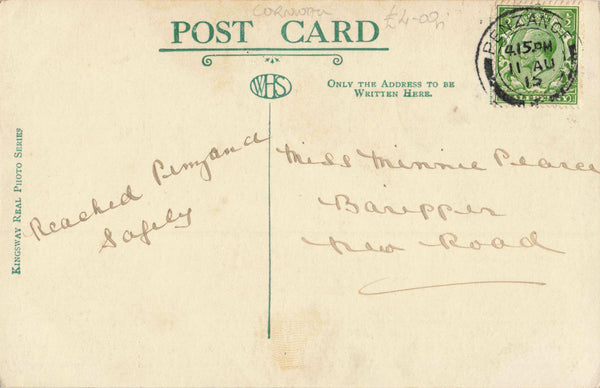 CORNWALL
£4-00
POST CARD
WHS
ONLY THE ADDRESS TO BE
WRITTEN HERE.
PENZANCE
4.15 PM
11 AU
15
KINGSWAY REAL PHOTO SERIES
Reached Penzance
Safely
Miss Minnie Pearce
Baripper
New Road